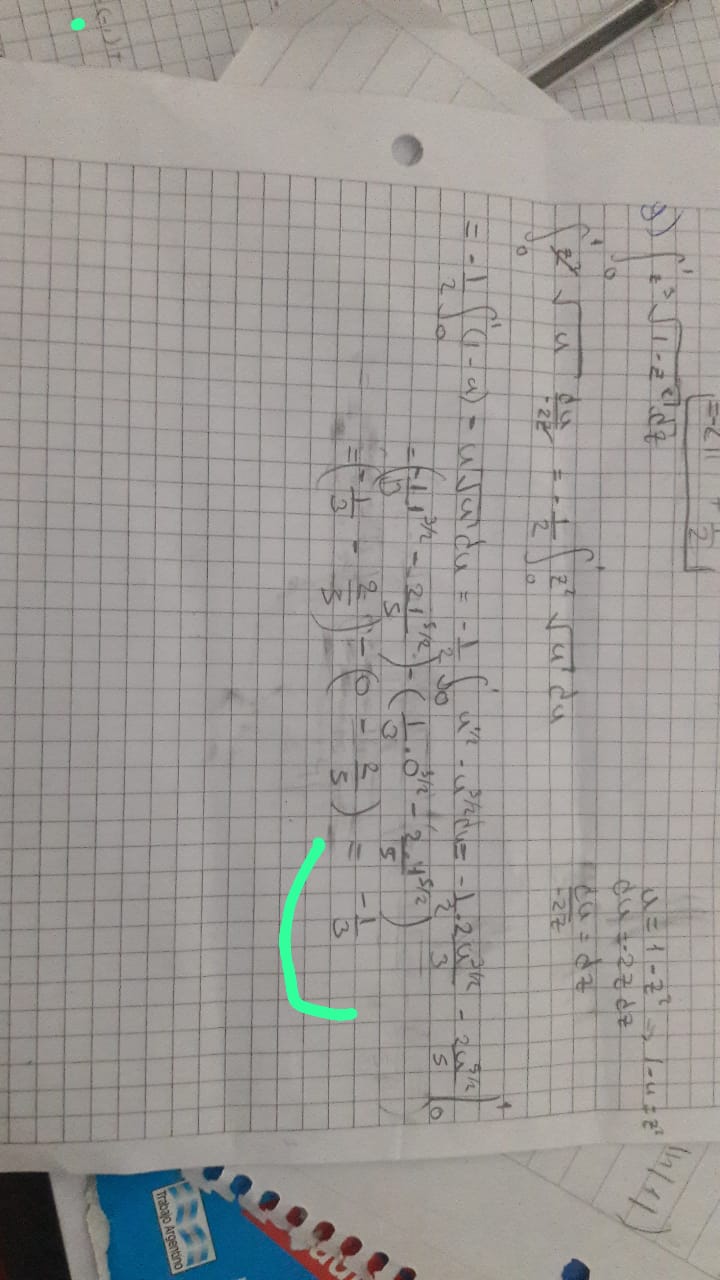 = -2π + 1/2
g) ∫₀¹ z³ √(1-z²) dz
u = 1 - z² → 1-u = z²
du = -2z dz
du/-2z = dz
∫₀¹ z³ √u du/-2z = -1/2 ∫₀¹ z² √u du
= -1/2 ∫₀¹ (1-u) - u√u du = -1/2 ∫₀¹ u^1/2 - u^3/2 du = -1/2 · 2u^3/2/3 - 2u^5/2/5 |₀¹
= (-1/3 1^3/2 - 2 1^5/2/5) - (1/3 · 0^3/2 - 2·1^5/2/5)
= (-1/3 - 2/5) - (0 - 2/5) = -1/3
(-1)+
Trabajo Argentino